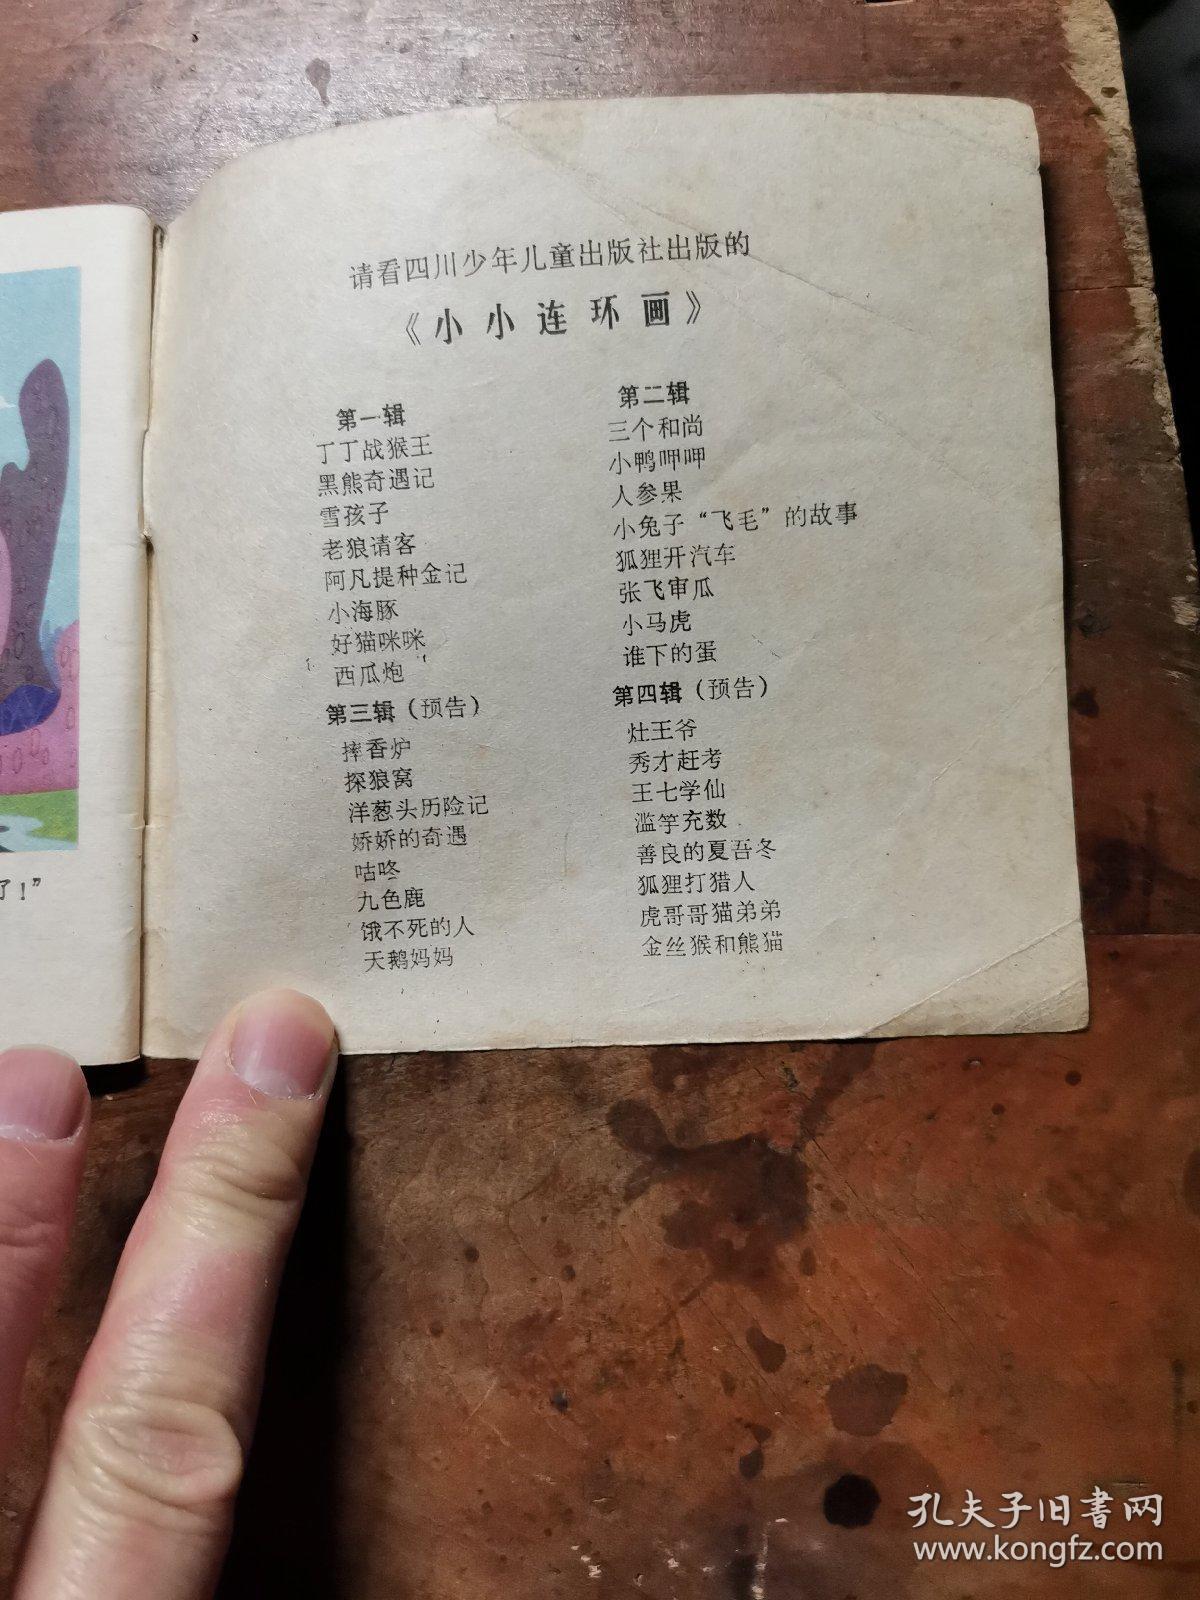 请看四川少年儿童出版社出版的
《小小连环画》
第一辑
丁丁战猴王
黑熊奇遇记
雪孩子
老狼请客
阿凡提种金记
小海豚
好猫咪咪
西瓜炮
第二辑
三个和尚
小鸭呷呷
人参果
小兔子“飞毛”的故事
狐狸开汽车
张飞审瓜
小马虎
谁下的蛋
第三辑(预告)
摔香炉
探狼窝
洋葱头历险记
娇娇的奇遇
咕咚
九色鹿
饿不死的人
天鹅妈妈
第四辑(预告)
灶王爷
秀才赶考
王七学仙
滥竽充数
善良的夏吾冬
狐狸打猎人
虎哥哥猫弟弟
金丝猴和熊猫
了!”
孔夫子旧书网
www.kongfz.com